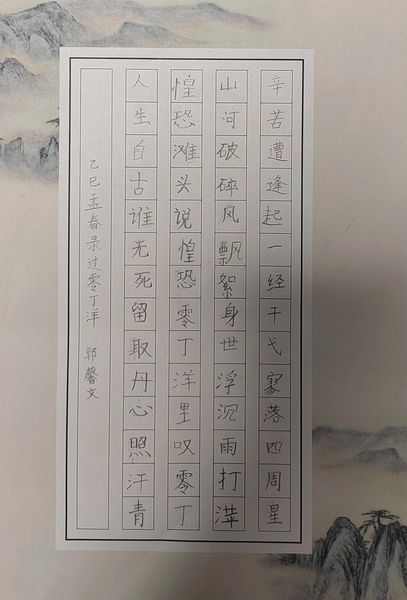 辛苦遭逢起一经干戈寥落四周星
山河破碎风飘絮身世浮沉雨打萍
惶恐滩头说惶恐零丁洋里叹零丁
人生自古谁无死留取丹心照汗青
乙巳孟春录过零丁洋 郭馨文